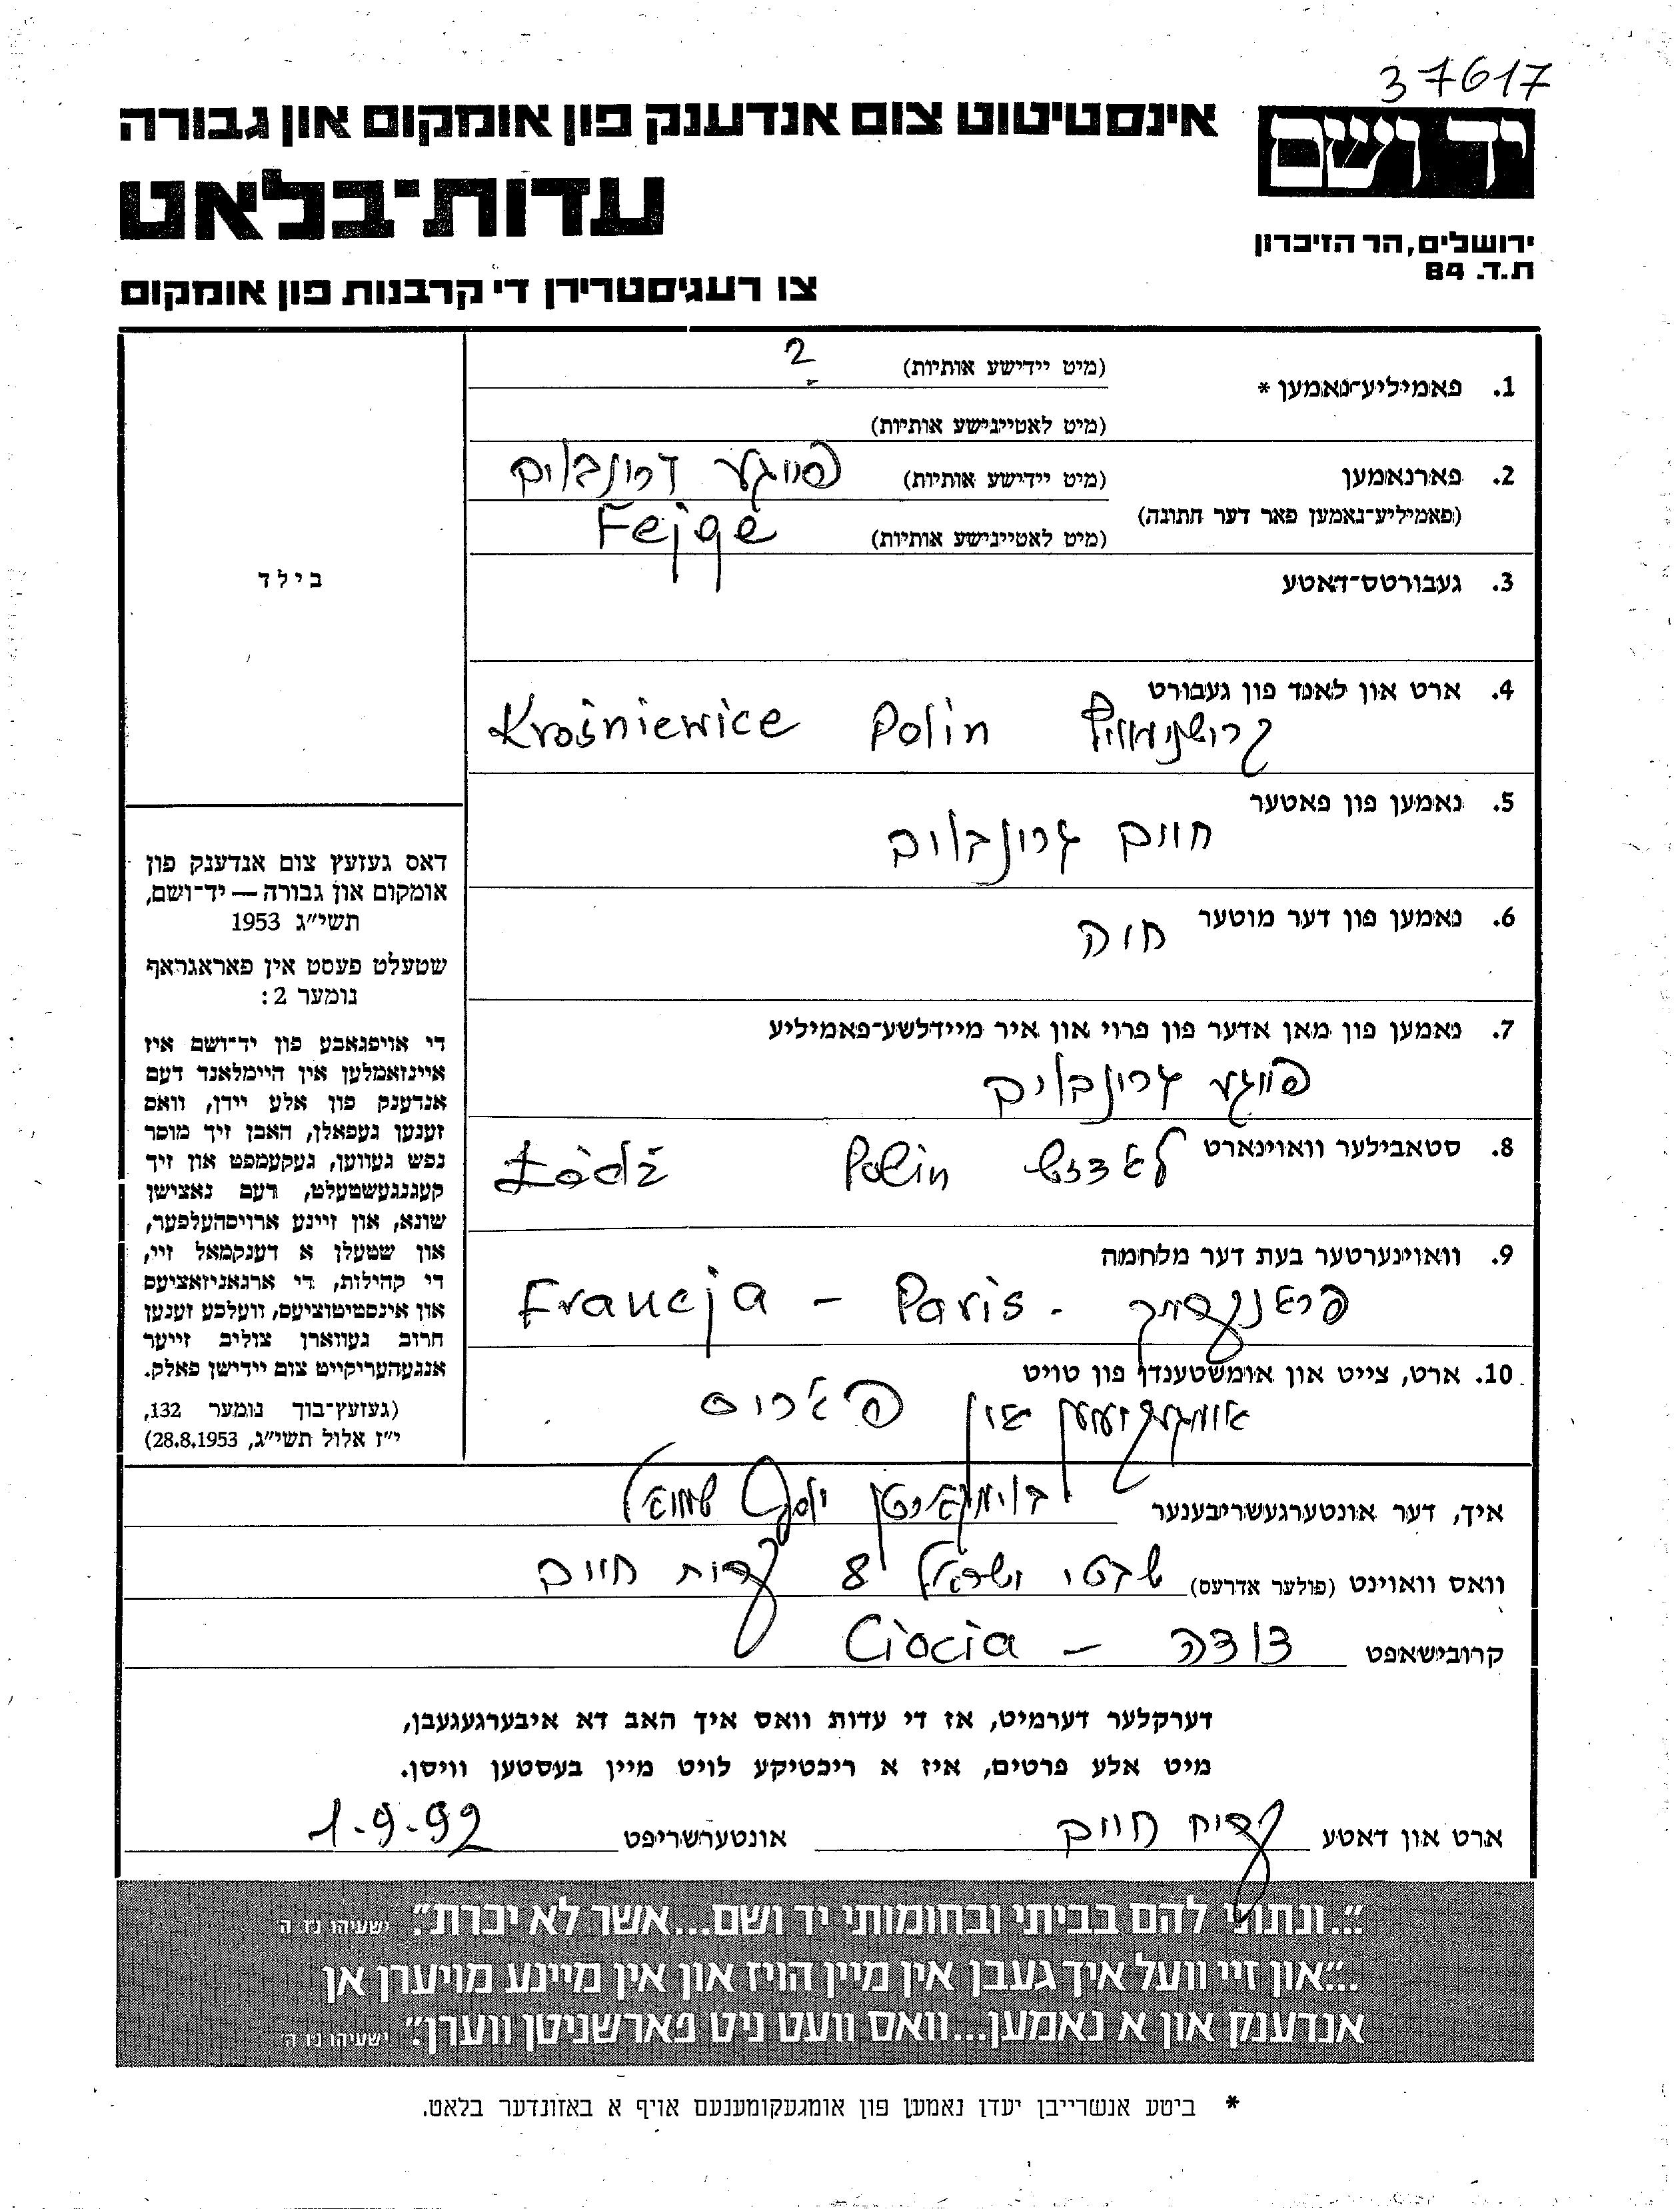 37617
אינסטיטוט צום אנדענק פון אומקום און גבורה
יד ושם
עדות־בלאט
ירושלים, הר הזיכרון
ת.ד. 84
צו רעגיסטרירן די קרבנות פון אומקום
1. פאמיליע־נאמען * (מיט יידישע אותיות) ?
(מיט לאטיינישע אותיות)
2. פארנאמען (מיט יידישע אותיות) פייגע גרונבלום
(פאמיליע־נאמען פאר דער חתונה) (מיט לאטיינישע אותיות) Fejge
בילד
3. געבורטס־דאטע
4. ארט און לאנד פון געבורט
Polin Krośniewice
5. נאמען פון פאטער
חיים גרונבלום
6. נאמען פון דער מוטער חוה
7. נאמען פון מאן אדער פון פרוי און איר מיידלשע־פאמיליע
פייגע גרונבלום
8. סטאבילער וואוינארט לאדזש Polin Łódź
9. וואוינערטער בעת דער מלחמה
פראנקרייך - Francja - Paris
10. ארט, צייט און אומשטענדן פון טויט
אומגעקומען אין פאריס
דאס געזעץ צום אנדענק פון
אומקום און גבורה — יד־ושם,
תשי״ג 1953
שטעלט פעסט אין פאראגראף
נומער 2:
די אויפגאבע פון יד־ושם איז
איינזאמלען אין היימלאנד דעם
אנדענק פון אלע יידן, וואס
זענען געפאלן, האבן זיך מוסר
נפש געווען, געקעמפט און זיך
קעגנגעשטעלט, דעם נאצישן
שונא, און זיינע ארויסהעלפער,
און שטעלן א דענקמאל זיי,
די קהילות, די ארגאניזאציעס
און אינסטיטוציעס, וועלכע זענען
חרוב געווארן צוליב זייער
אנגעהעריקייט צום יידישן פאלק.
(געזעץ־בוך נומער 132,
י״ז אלול תשי״ג, 28.8.1953)
איך, דער אונטערגעשריבענער יוסף שמואל
וואס וואוינט (פולער אדרעס) שבטי ישראל 8 קרית חיים
קרובישאפט דודה - Ciocia
דערקלער דערמיט, אז די עדות וואס איך האב דא איבערגעגעבן,
מיט אלע פרטים, איז א ריכטיקע לויט מיין בעסטען וויסן.
ארט און דאטע קרית חיים אונטערשריפט 1.9.92
״...ונתתי להם בביתי ובחומותי יד ושם...אשר לא יכרת״. ישעיהו נ״ו ה׳
״...און זיי וועל איך געבן אין מיין הויז און אין מיינע מויערן אן
אנדענק און א נאמען...וואס וועט ניט פארשניטן ווערן״. ישעיהו נ״ו ה׳
* ביטע אנשרייבן יעדן נאמען פון אומגעקומענעם אויף א באזונדער בלאט.